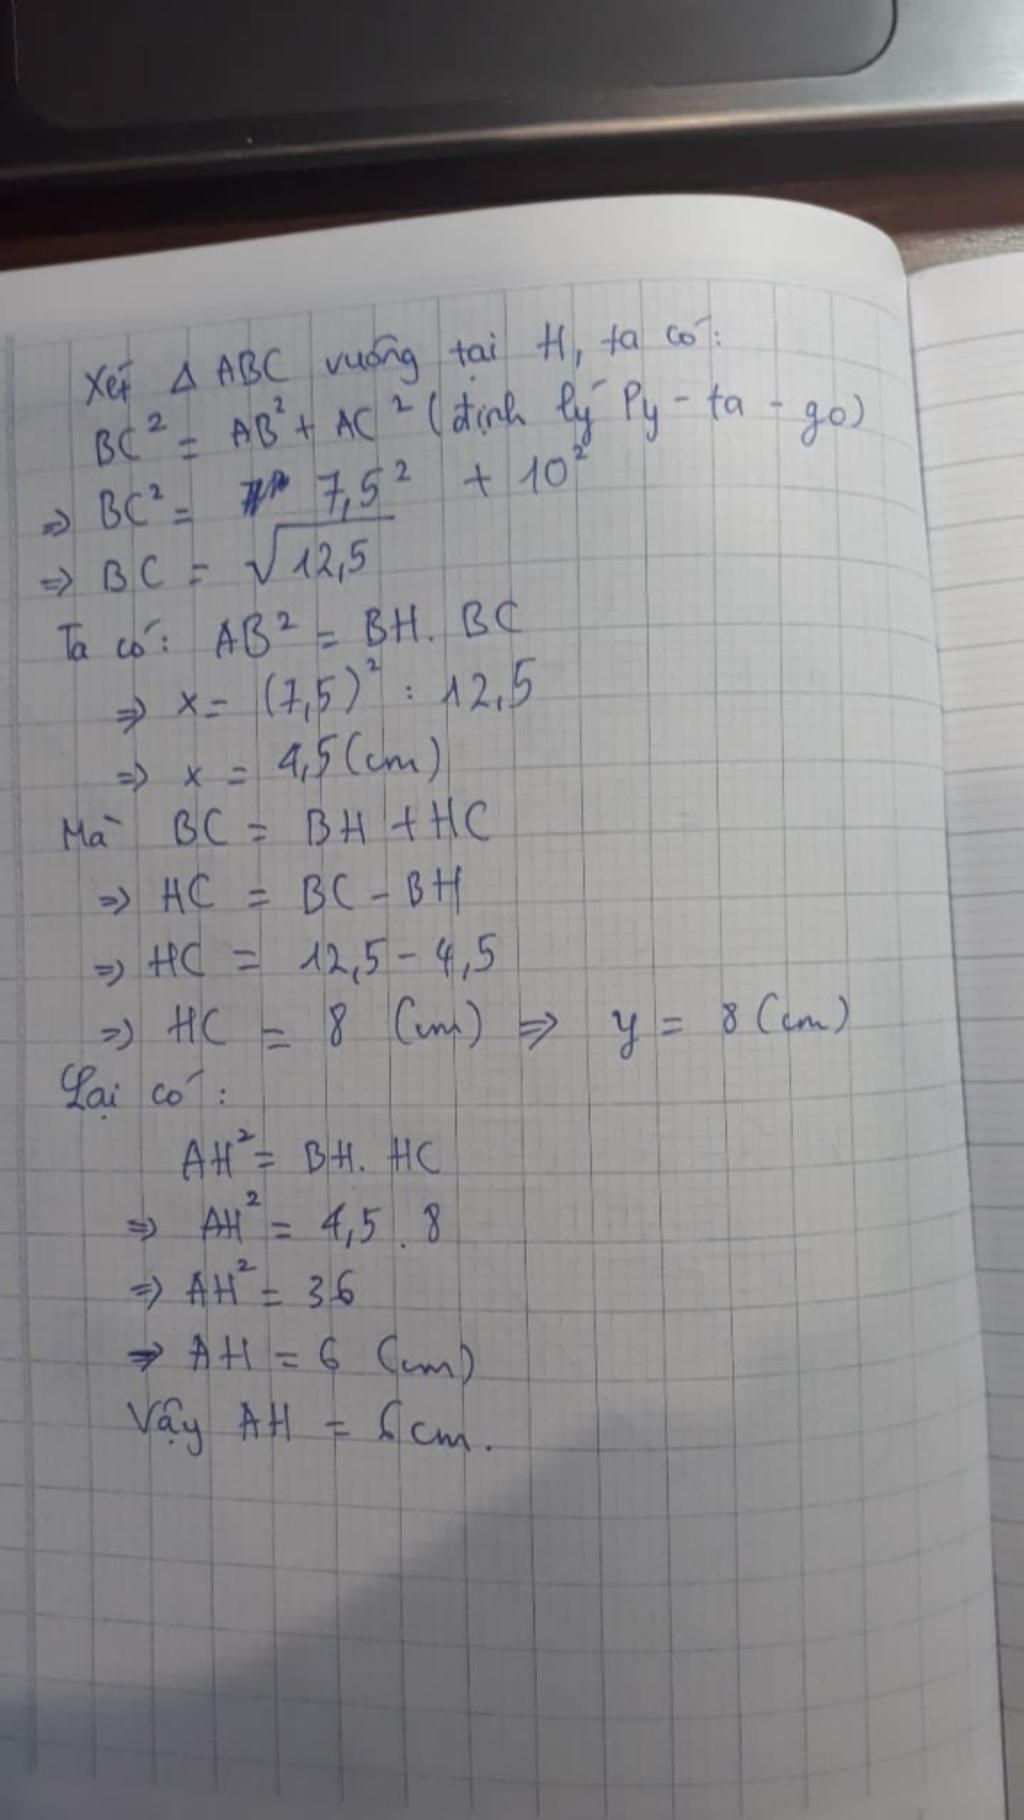 Xét Δ ABC vuông tại H, ta có:
BC² = AB² + AC² (định lý Py-ta-go)
⇒ BC² = 7,5² + 10²
⇒ BC = √12,5
Ta có: AB² = BH. BC
⇒ x = (7,5)² : 12,5
⇒ x = 4,5 (cm)
Mà BC = BH + HC
⇒ HC = BC - BH
⇒ HC = 12,5 - 4,5
⇒ HC = 8 (cm) ⇒ y = 8 (cm)
Lại có:
AH² = BH. HC
⇒ AH² = 4,5 . 8
⇒ AH² = 36
⇒ AH = 6 (cm)
Vậy AH = 6cm.